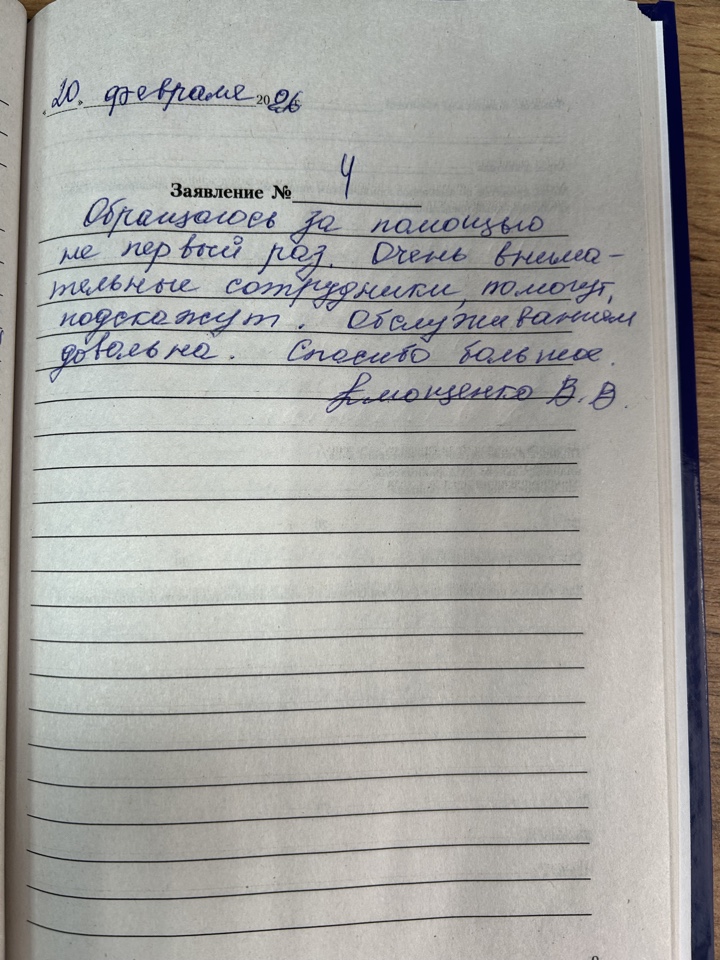 20. февраля 2026
Заявление № 4
Обращаюсь за помощью
не первый раз. Очень внима-
тельные сотрудники, помогут,
подскажут. Обслуживанием
довольна. Спасибо большое.
В. В.